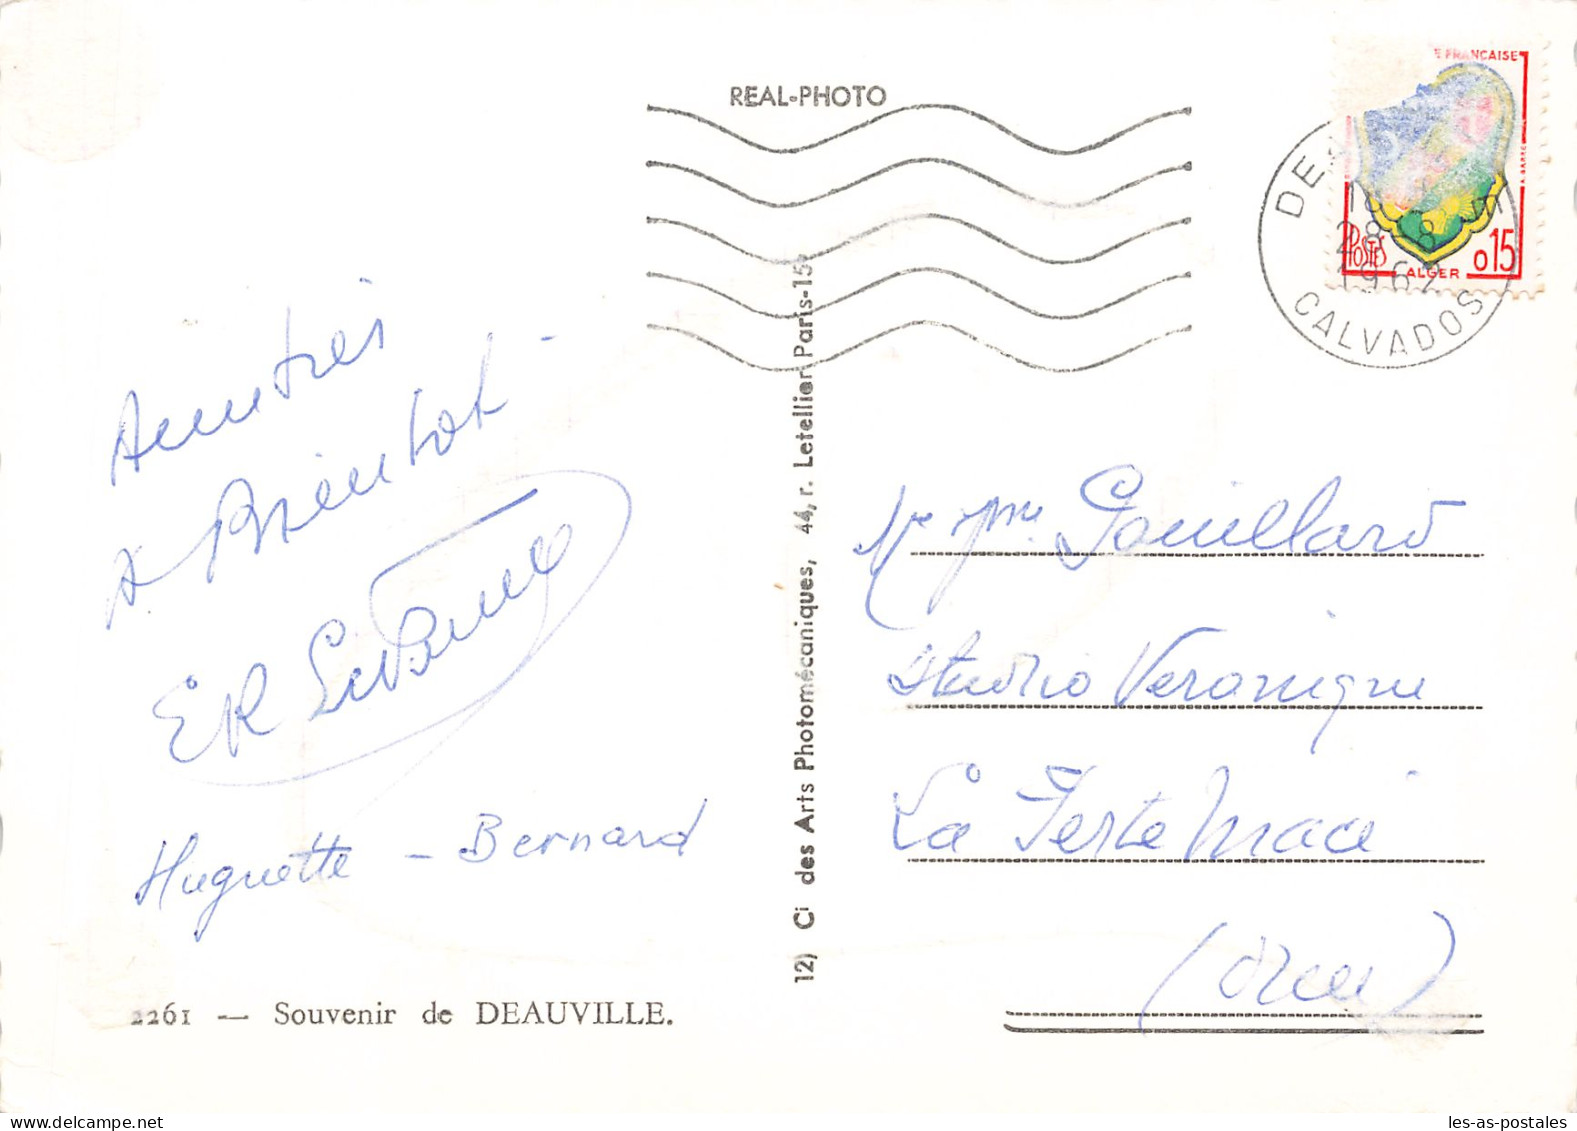 REAL-PHOTO
E FRANCAISE
POSTES
ALGER
0,15
DE
18
28-8
1962
CALVADOS
Amitiés
a Bientot.
Huguette - Bernard
2261 — Souvenir de DEAUVILLE.
12) Ci des Arts Photomécaniques, 44, r. Letellier Paris-15e
Mr Mme Gouillard
Studio Veronique
La Ferte Macé
(Orne)
www.delcampe.net
les-as-postales